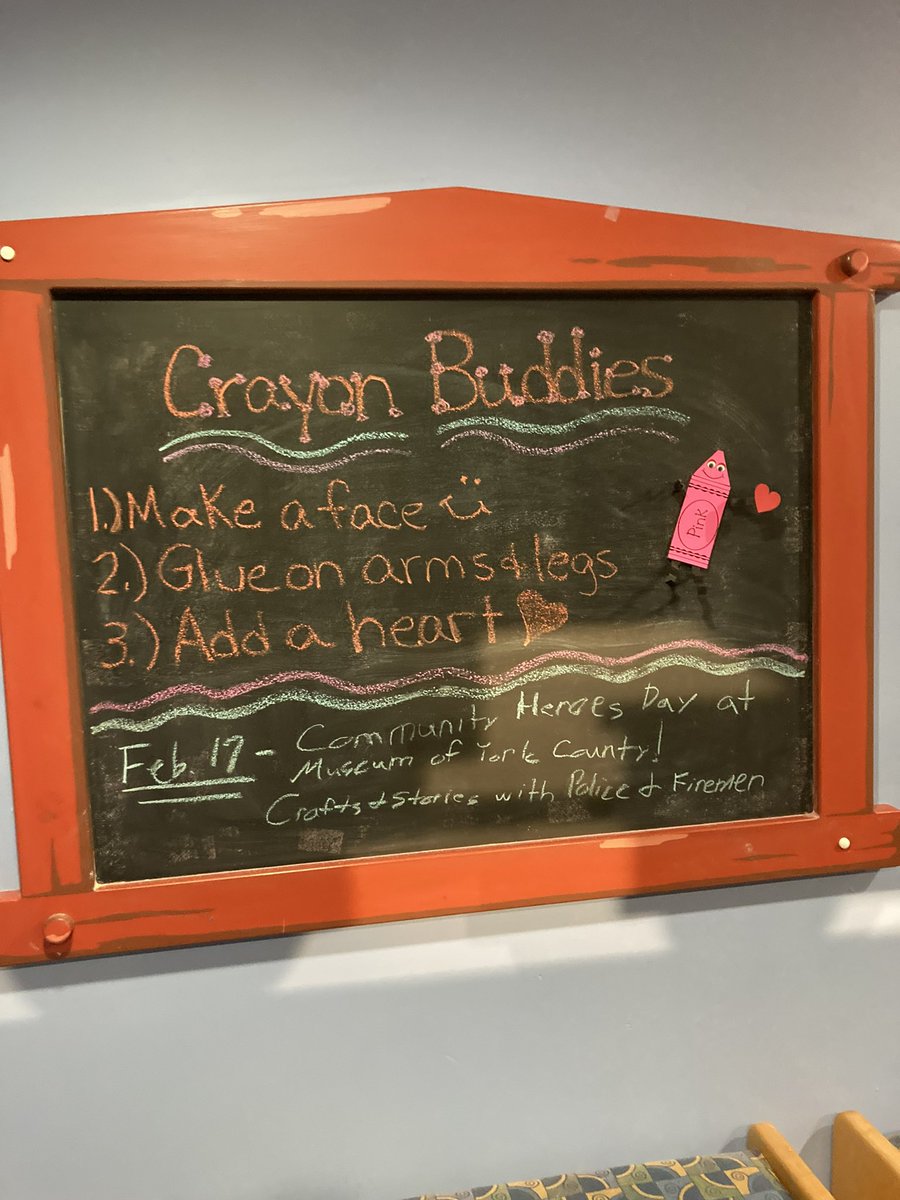 Crayon Buddies
1.) Make a face
2.) Glue on arms & legs
3.) Add a heart
Pink
Feb. 17 - Community Heroes Day at
Museum of York County!
Crafts & Stories with Police & Firemen